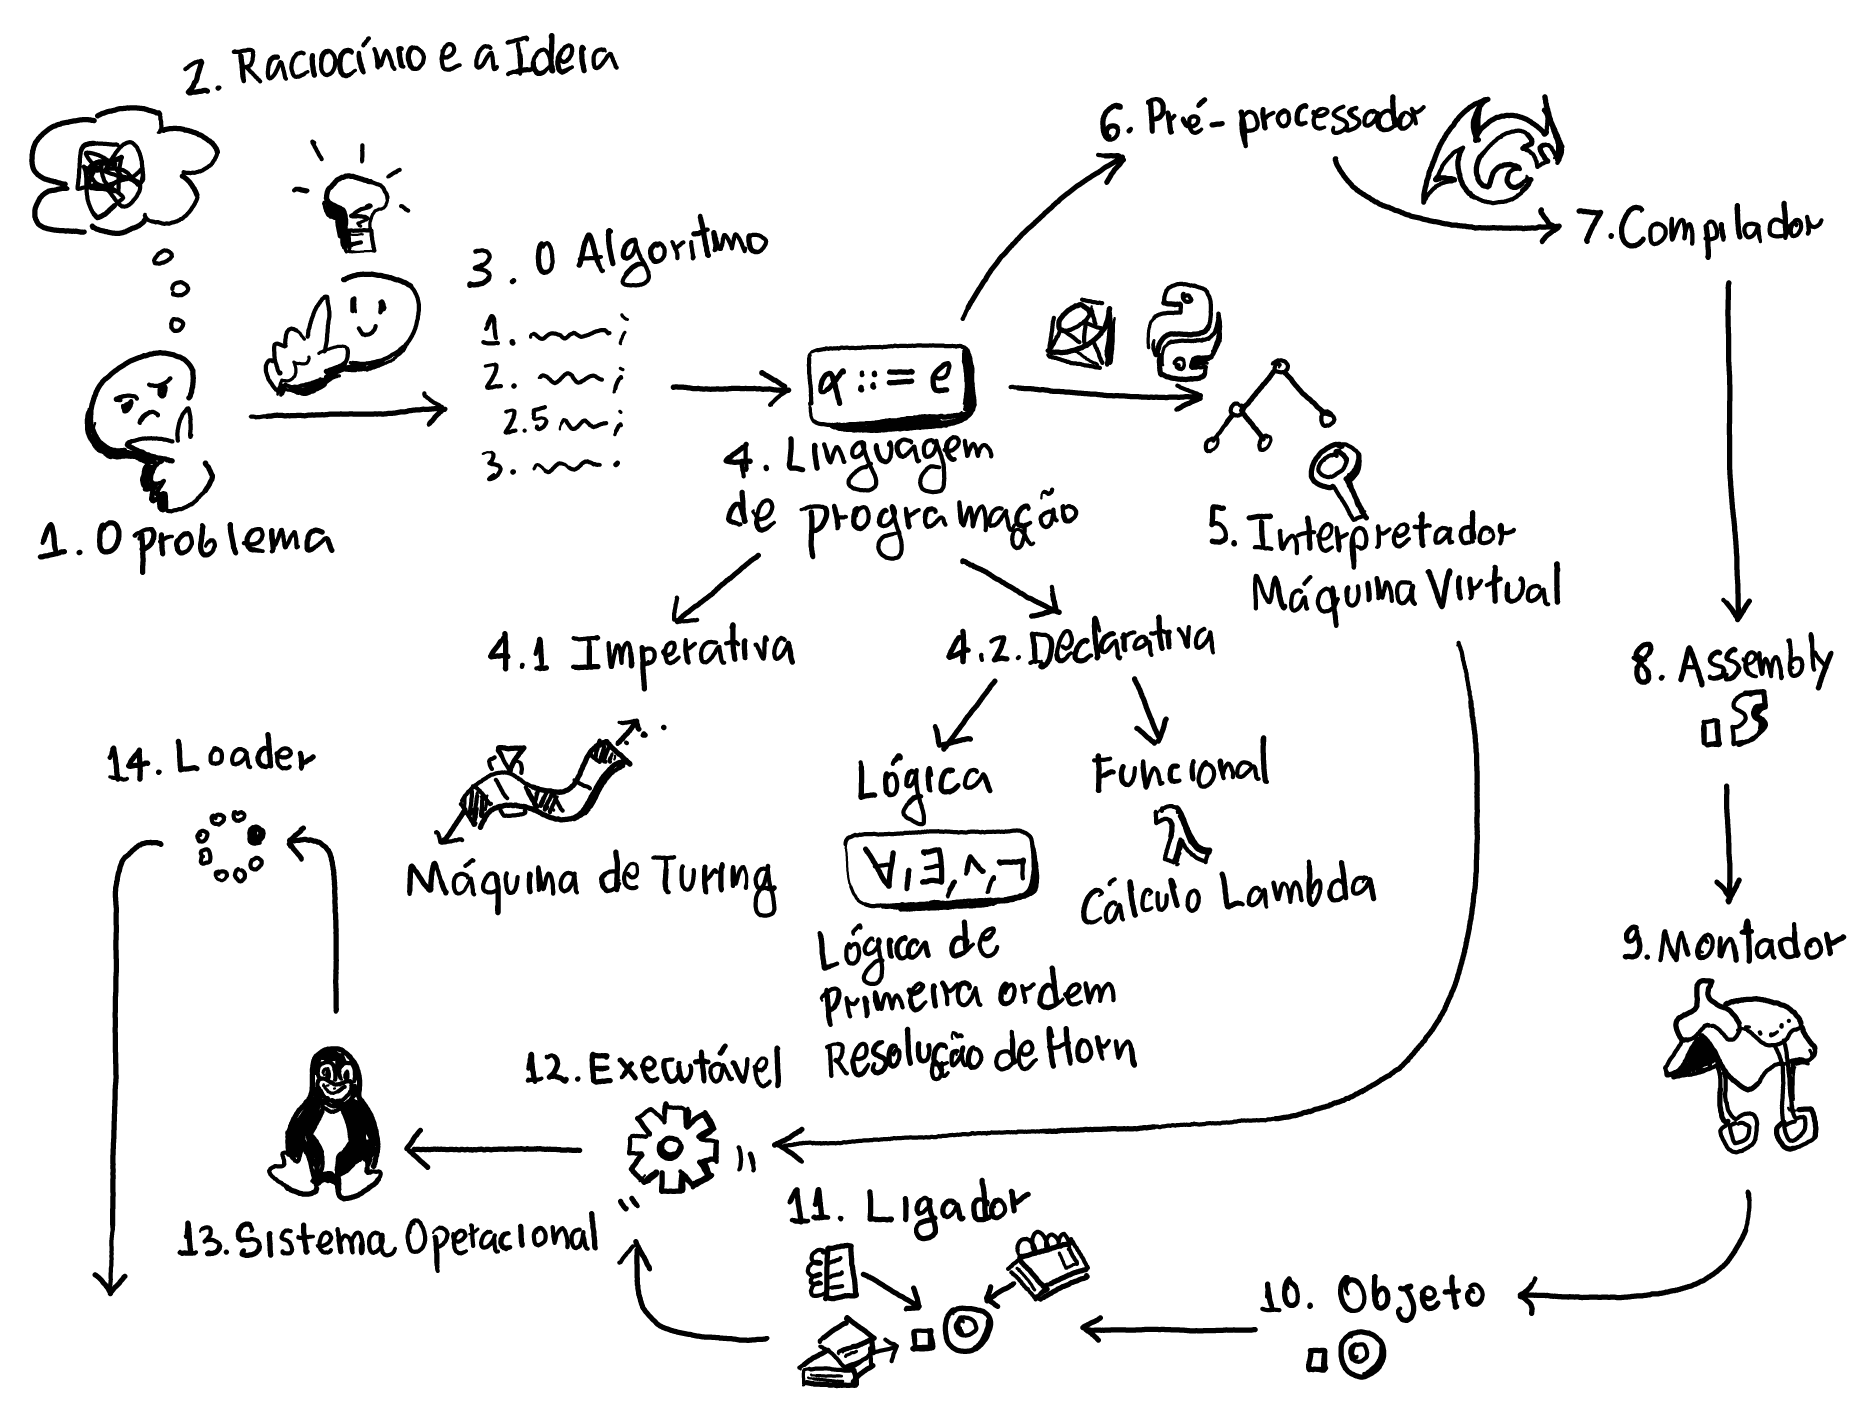 2. Raciocínio e a Ideia
1. O problema
3. O Algoritmo
1. ;
2. ;
2.5 ;
3. .
α ::= e
4. Linguagem
de programação
4.1 Imperativa
Máquina de Turing
4.2. Declarativa
Lógica
∀,∃,∧,¬
Lógica de
Primeira ordem
Resolução de Horn
Funcional
λ
Cálculo Lambda
5. Interpretador
Máquina Virtual
6. Pré-processador
7. Compilador
8. Assembly
.S
9. Montador
10. Objeto
.o
11. Ligador
.o
12. Executável
13. Sistema Operacional
14. Loader